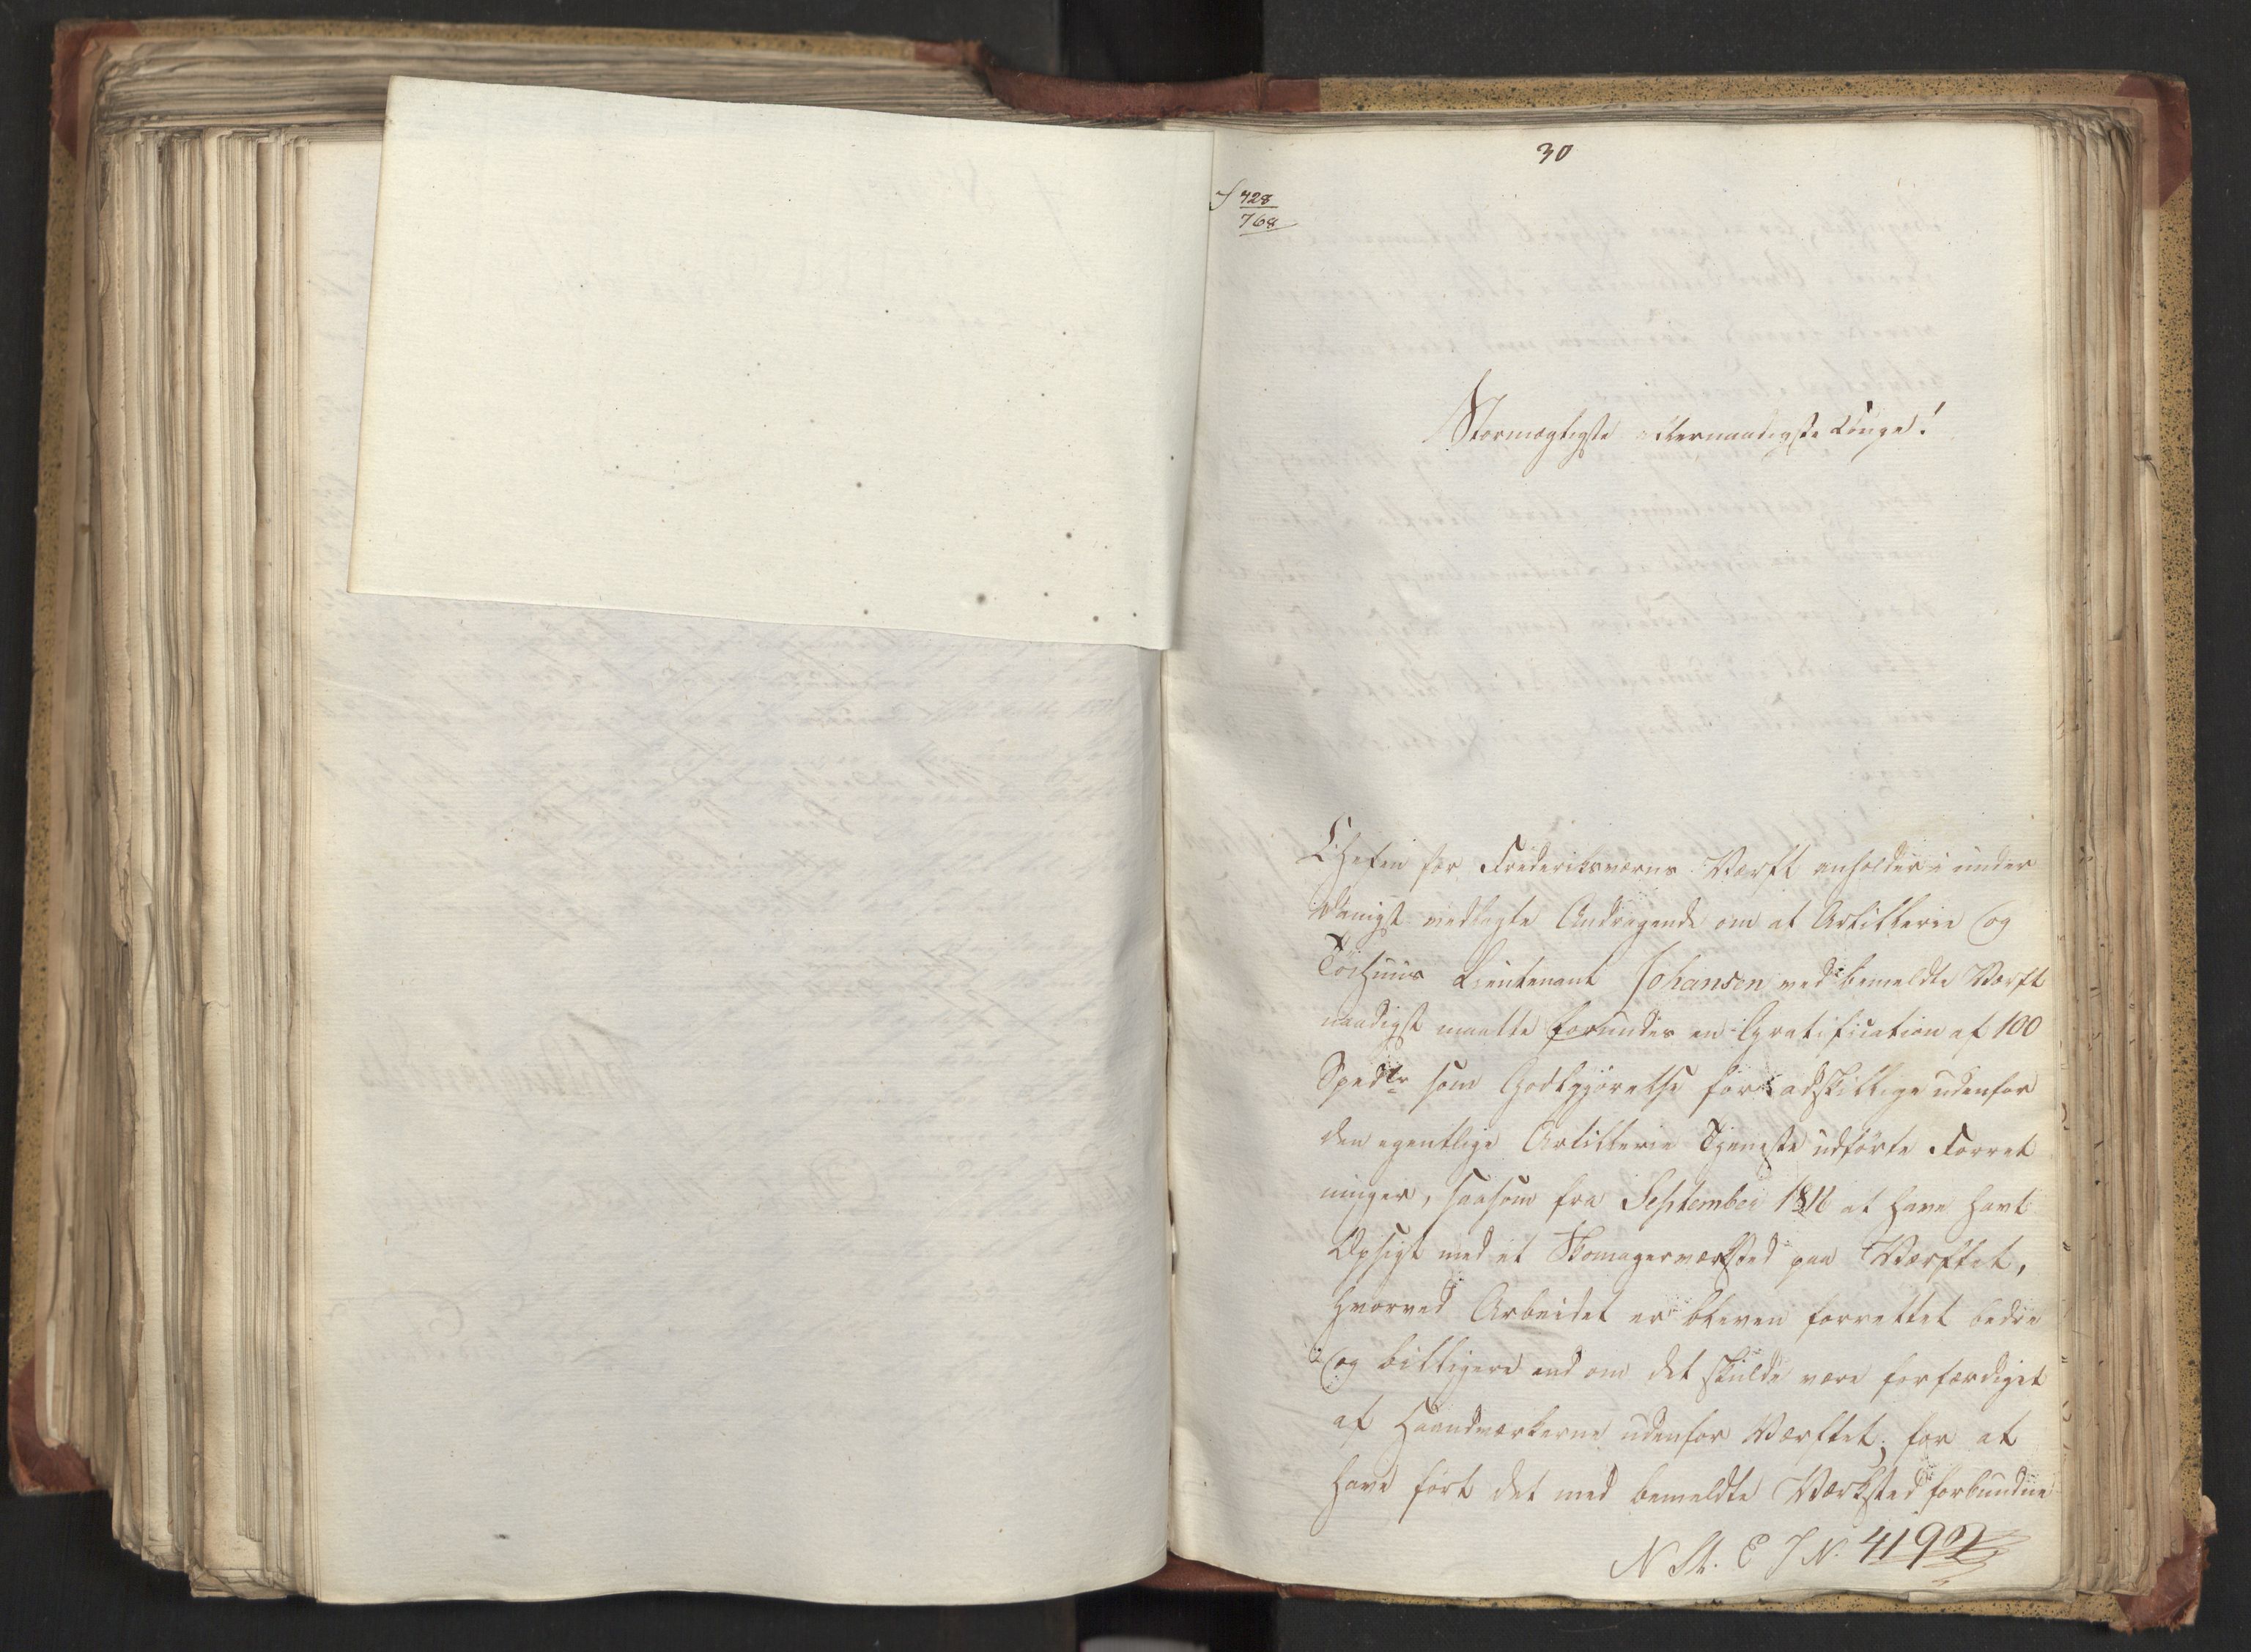 30
J 428
768
Stormægtigste Allernaadigste Konge!
Chefen for Frederiksværns Værft anholder i under
danigst vedlagte Andragende om at Artillerie og
Töihuus Lieutenant Johansen ved bemeldte Værft
naadigst maatte forundes en Gratification af 100
Spedlr som Godtgjørelse for adskillige udenfor
den egentlige Artillerie Tjeneste udførte Forret
ninger, saasom fra September 1816 at have havt
Opsigt med et Skomagerværksted paa Værftet,
hvorved Arbeidet er bleven forrettet bedre
og billigere end om det skulde være forfærdiget
af Haandværkerne udenfor Værftet; for at
have ført det med bemeldte Værksted forbundne
N St. E J N. 4190